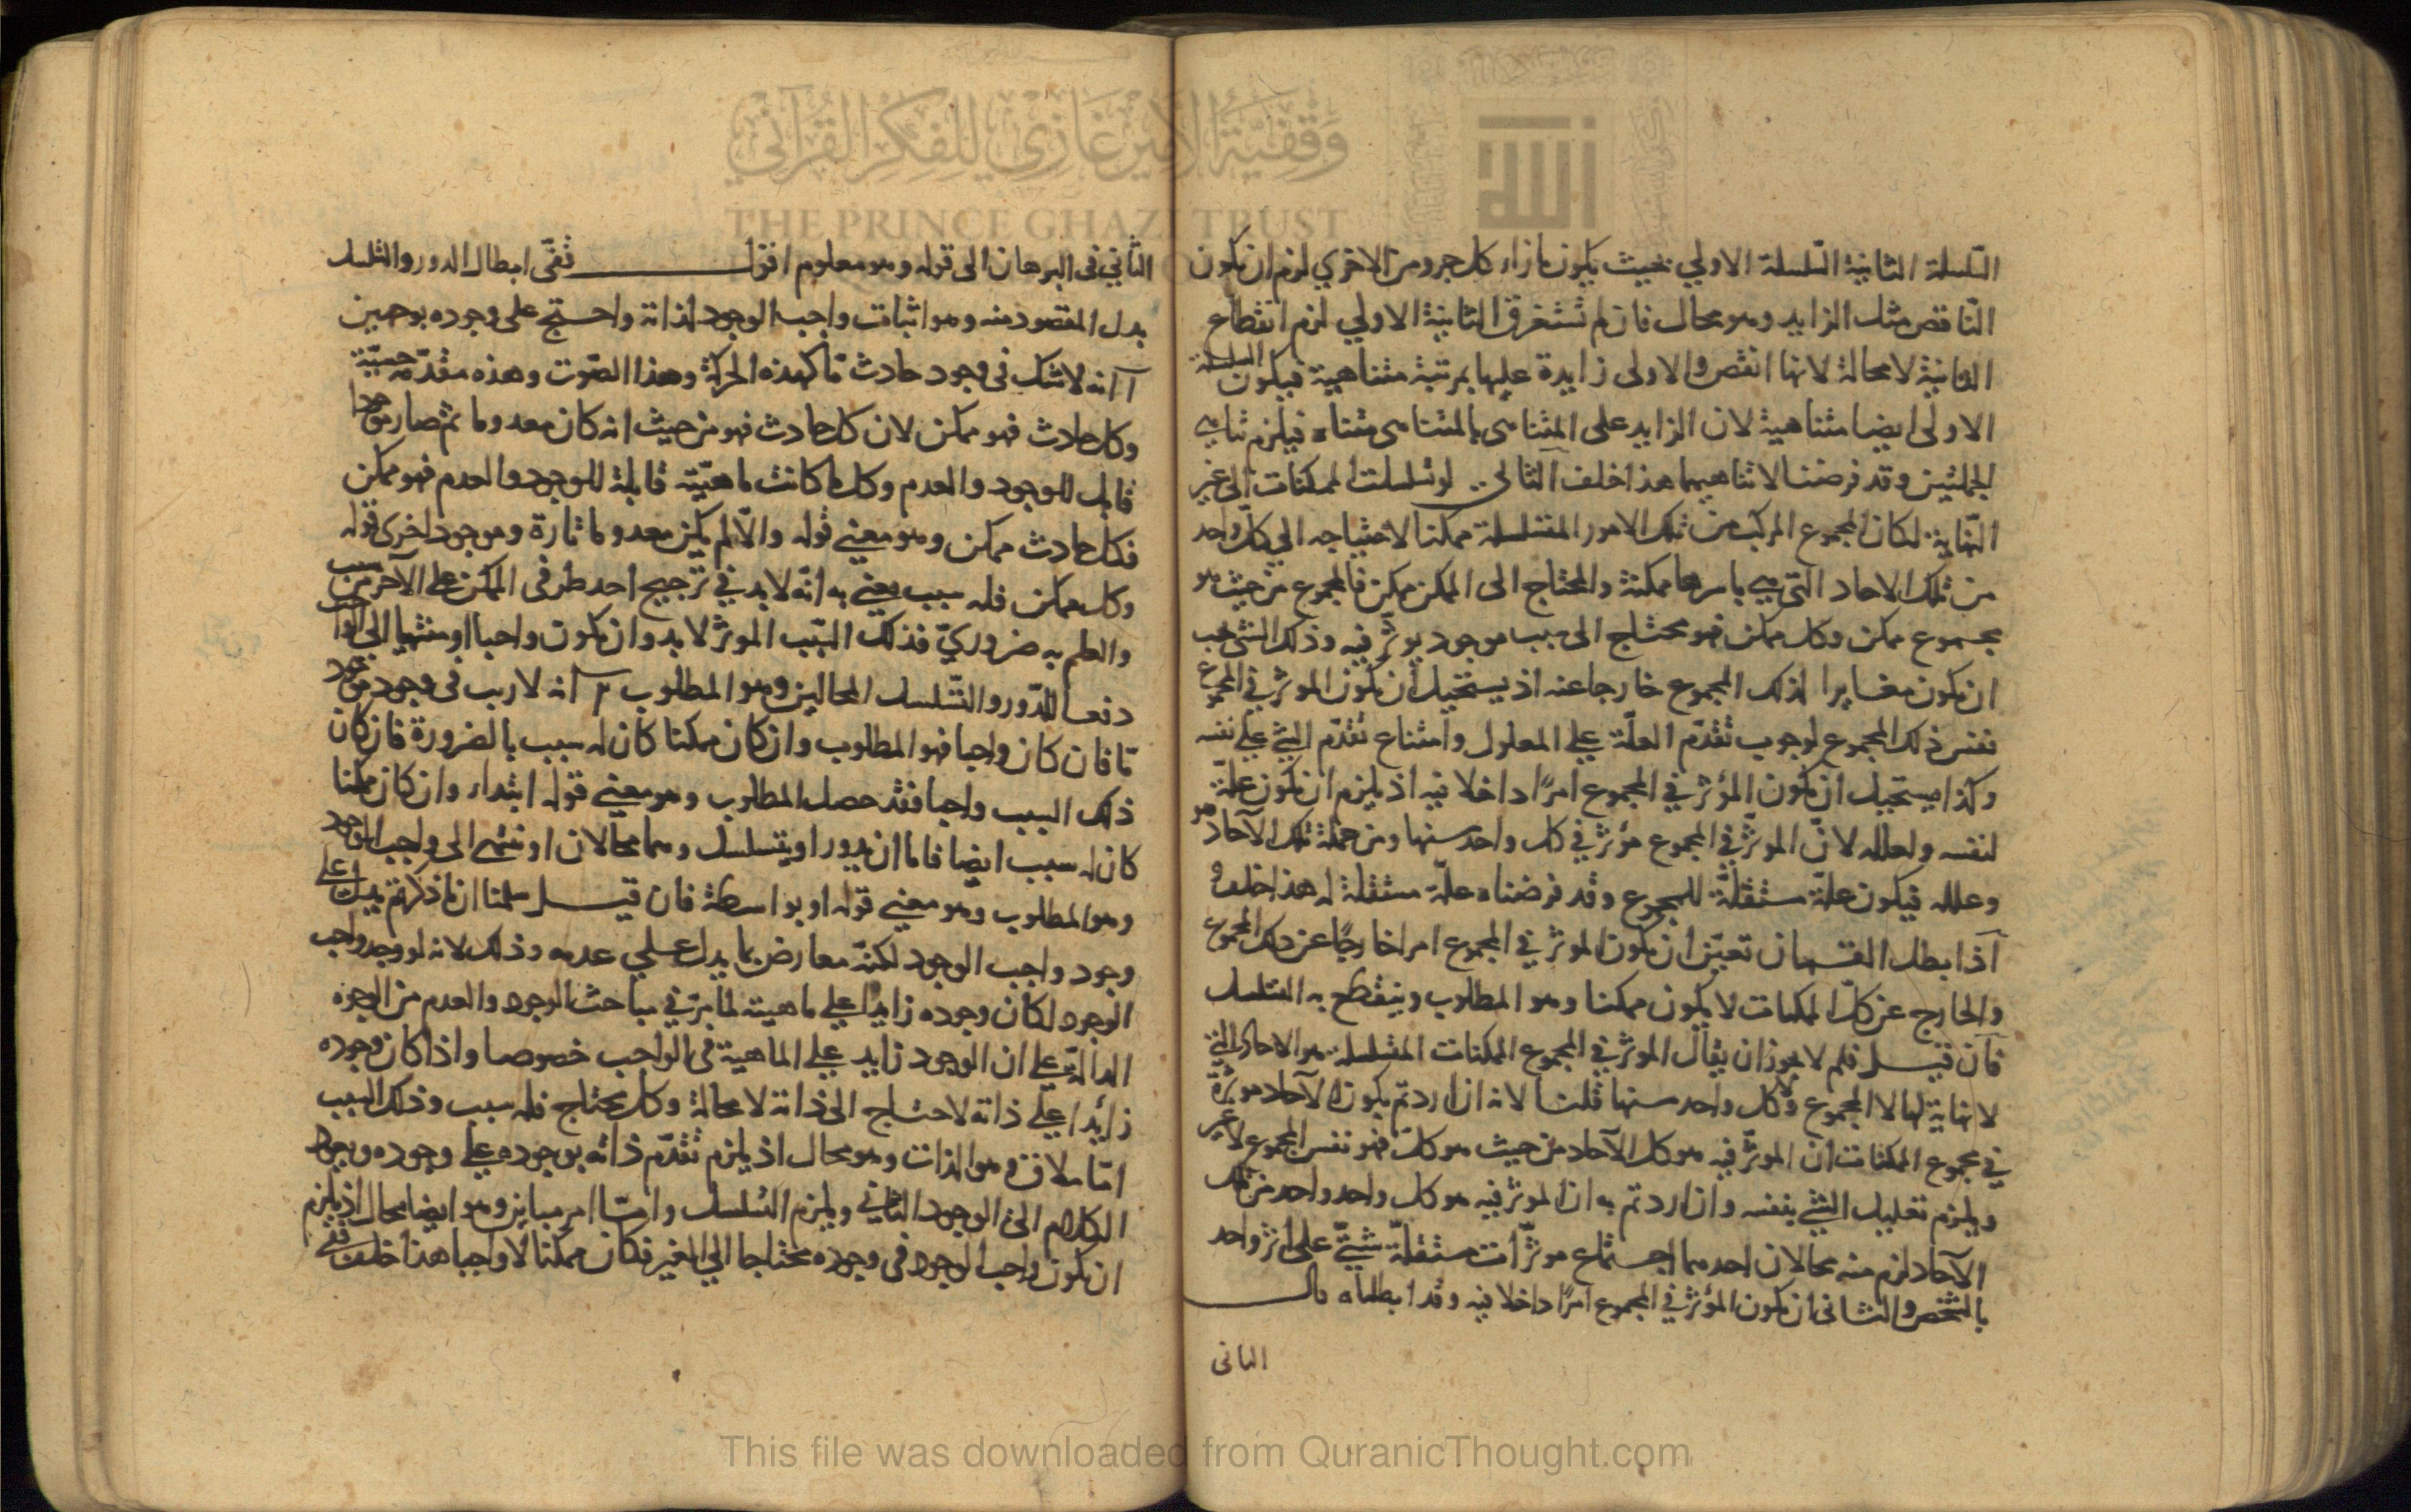 السلسلة الثانية السلسلة الاولي بحيث يكون بازاء كل جزو من الاخري لزم ان يكون
الناقص مثل الزايد وهو محال فان لم تستغرق الثانية الاولي لزم انقطاع
الثانية لا محالة لانها انقص والاولى زايدة عليها بمرتبة متناهية فيكون السلسلة
الاولى ايضا متناهية لان الزايد على المتناهى بالمتناهى متناه فيلزم تناهي
الجملتين وقد فرضنا لا تناهيهما هذا خلف الثانى لو تسلسلت الممكنات الى غير
النهاية لكان المجموع المركب من تلك الامور المتسلسلة ممكنا لاحتياجه الي كل واحد
من تلك الاحاد التي هي باسرها ممكنة والمحتاج الى الممكن ممكن فالمجموع من حيث هو
مجموع ممكن وكل ممكن فهو محتاج الى سبب موجود يوثر فيه وذلك الشئ يجب
ان يكون مغايرا لذلك المجموع خارجا عنه اذ يستحيل ان يكون الموثر في المجموع
نفس ذلك المجموع لوجوب تقدم العلة علي المعلول وامتناع تقدم الشئ علي نفسه
وكذا يستحيل ان يكون المؤثر في المجموع امرا داخلا فيه اذ يلزم ان يكون علة
لنفسه ولعلله لان الموثر في المجموع مؤثر في كل واحد منها ومن جملة تلك الآحاد هو
وعلله فيكون علة مستقلة للمجموع وقد فرضناه علة مستقلة له هذا خلف و
اذا بطل القسمان تعين ان يكون الموثر في المجموع امرا خارجا عن ذلك المجموع
والخارج عن كل الممكنات لا يكون ممكنا وهو المطلوب وينقطع به التسلسل
فان قيل فلم لا يجوز ان يقال الموثر في المجموع الممكنات المتسلسلة هو الاحاد التي
لا نهاية لها لا المجموع ولا كل واحد منها قلنا لانه ان اردتم بكون الآحاد موثرة
في مجموع الممكنات ان الموثر فيه هو كل الآحاد من حيث هو كل فهو نفس المجموع لا غير
ويلزم تعليل الشئ بنفسه وان اردتم به ان الموثر فيه هو كل واحد واحد من تلك
الآحاد لزم منه محالان احدهما اجتماع موثرات مستقلة شتي على اثر واحد
بالشخص والثانى ان يكون المؤثر في المجموع امرا داخلا فيه وقد ابطلناه قال
الثانى
الثاني في البرهان الى قوله وهو معلوم اقول ابطال الدور والتسلسل
بدل المقصود منه وهو اثبات واجب الوجود لذاته واحتج على وجوده بوجهين
آ انه لا شك في وجود حادث ما كهذه الحركة وهذا الصوت وهذه مقدمة حسية
وكل حادث فهو ممكن لان كل حادث فهو من حيث انه كان معدوما ثم صار موجودا
قابل للوجود والعدم وكل ما كانت ماهيته قابلة للوجود والعدم فهو ممكن
فكل حادث ممكن وهو معني قوله والا لم يكن معدوما تارة وموجودا اخرى قوله
وكل ممكن فله سبب يعني به انه لا بد في ترجيح احد طرفى الممكن على الآخر من سبب
والعلم به ضروري فذلك السبب الموثر لا بد وان يكون واجبا او منتهيا الى الواجب
دفعا للدور والتسلسل المحالين وهو المطلوب ٢ انه لا ريب فى وجود موجود
ما فان كان واجبا فهو المطلوب وان كان ممكنا كان له سبب بالضرورة فان كان
ذلك السبب واجبا فقد حصل المطلوب وهو معني قوله ابتداء وان كان ممكنا
كان له سبب ايضا فاما ان يدور او يتسلسل وهما محالان او ينتهي الى واجب الوجود
وهو المطلوب وهو معني قوله او بواسطة فان قيل سلمنا ان ما ذكرتم يدل على
وجود واجب الوجود لكنه معارض بما يدل علي عدمه وذلك لانه لو وجد واجب
الوجود لكان وجوده زايدا علي ماهيته لما مر في مباحث الوجود والعدم من الوجوه
الدالة علي ان الوجود زايد علي الماهية فى الواجب خصوصا واذا كان وجوده
زائدا علي ذاته لاحتاج الى ذاته لا محالة وكل محتاج فله سبب وذلك السبب
اما ملاق وهو الذات وهو محال اذ يلزم تقدم ذاته بوجوده علي وجوده ويعود
الكلام الى الوجود الثاني ويلزم التسلسل واما امر مباين وهو ايضا محال اذ يلزم
ان يكون واجب الوجود فى وجوده محتاجا الي الغير فكان ممكنا لا واجبا هذا خلف
وقفية الأمير غازي للفكر القرآني
THE PRINCE GHAZI TRUST
الله
This file was downloaded from QuranicThought.com